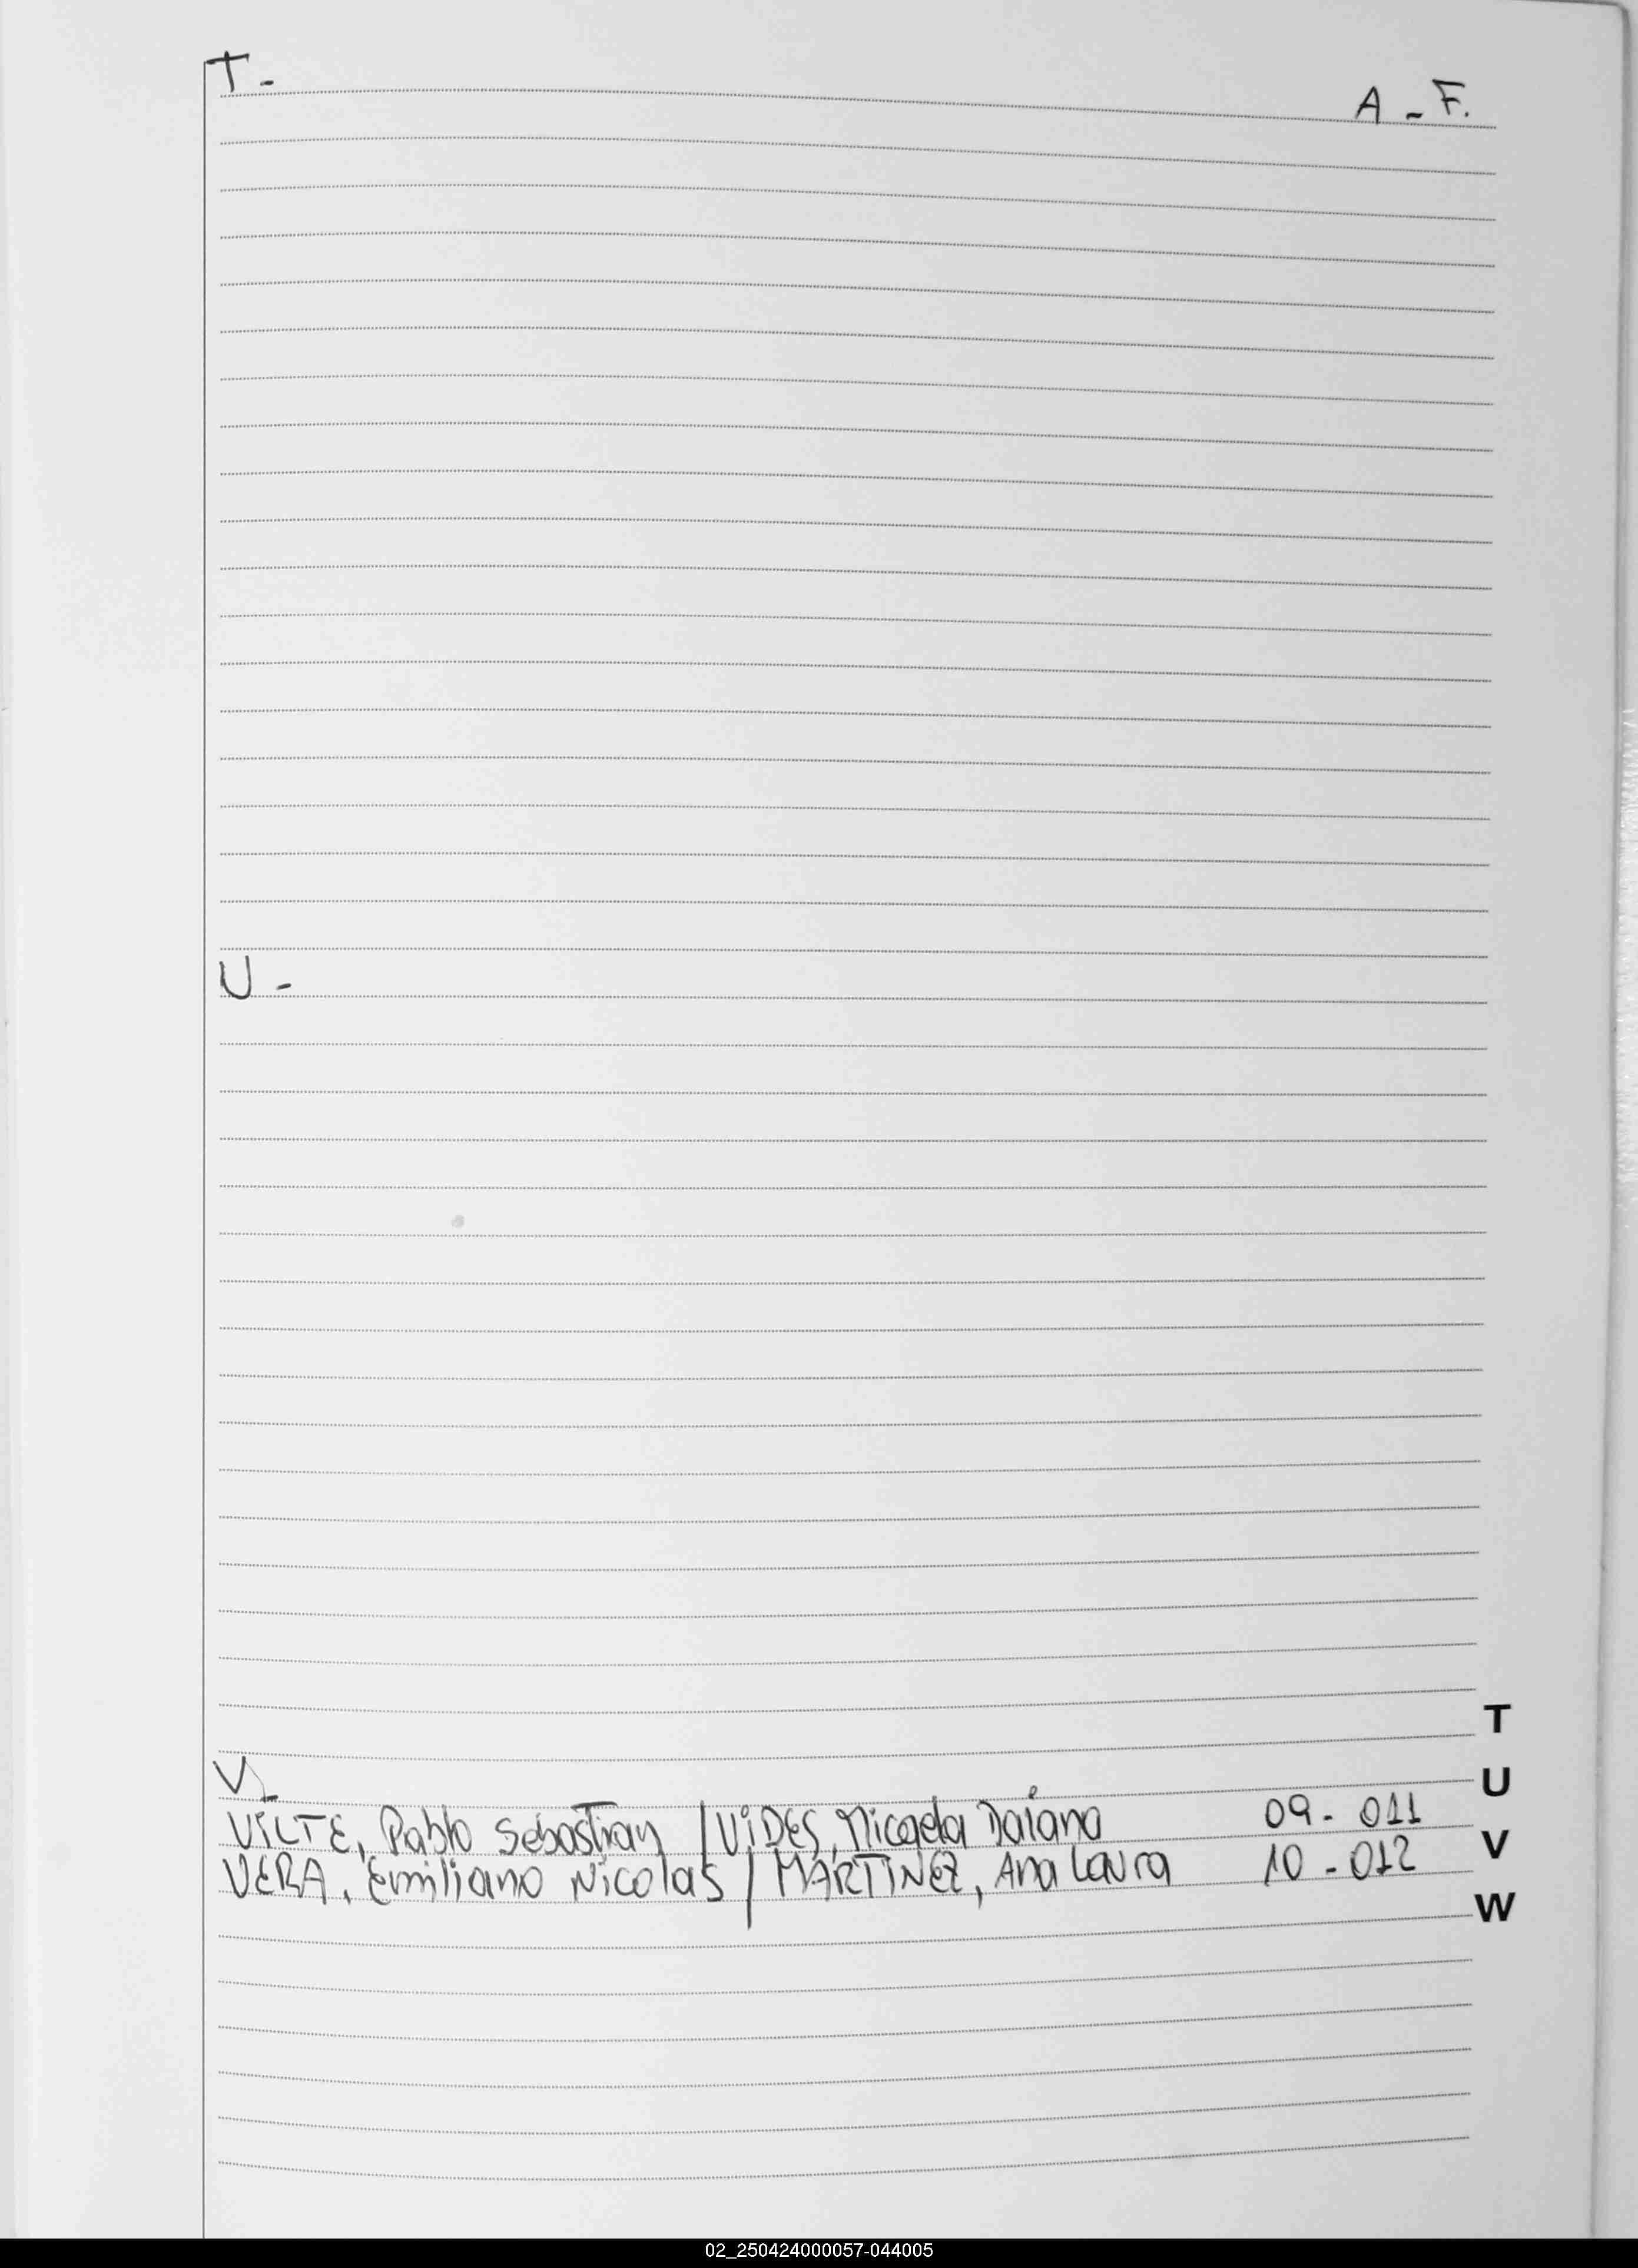 T - A - F.
U -
V -
VILTE, Pablo Sebastian / ViDES, Micaela Daiana 09 - 011
VERA, Emiliano Nicolas / MARTINEZ, Ana Laura 10 - 012
T
U
V
W
02_250424000057-044005